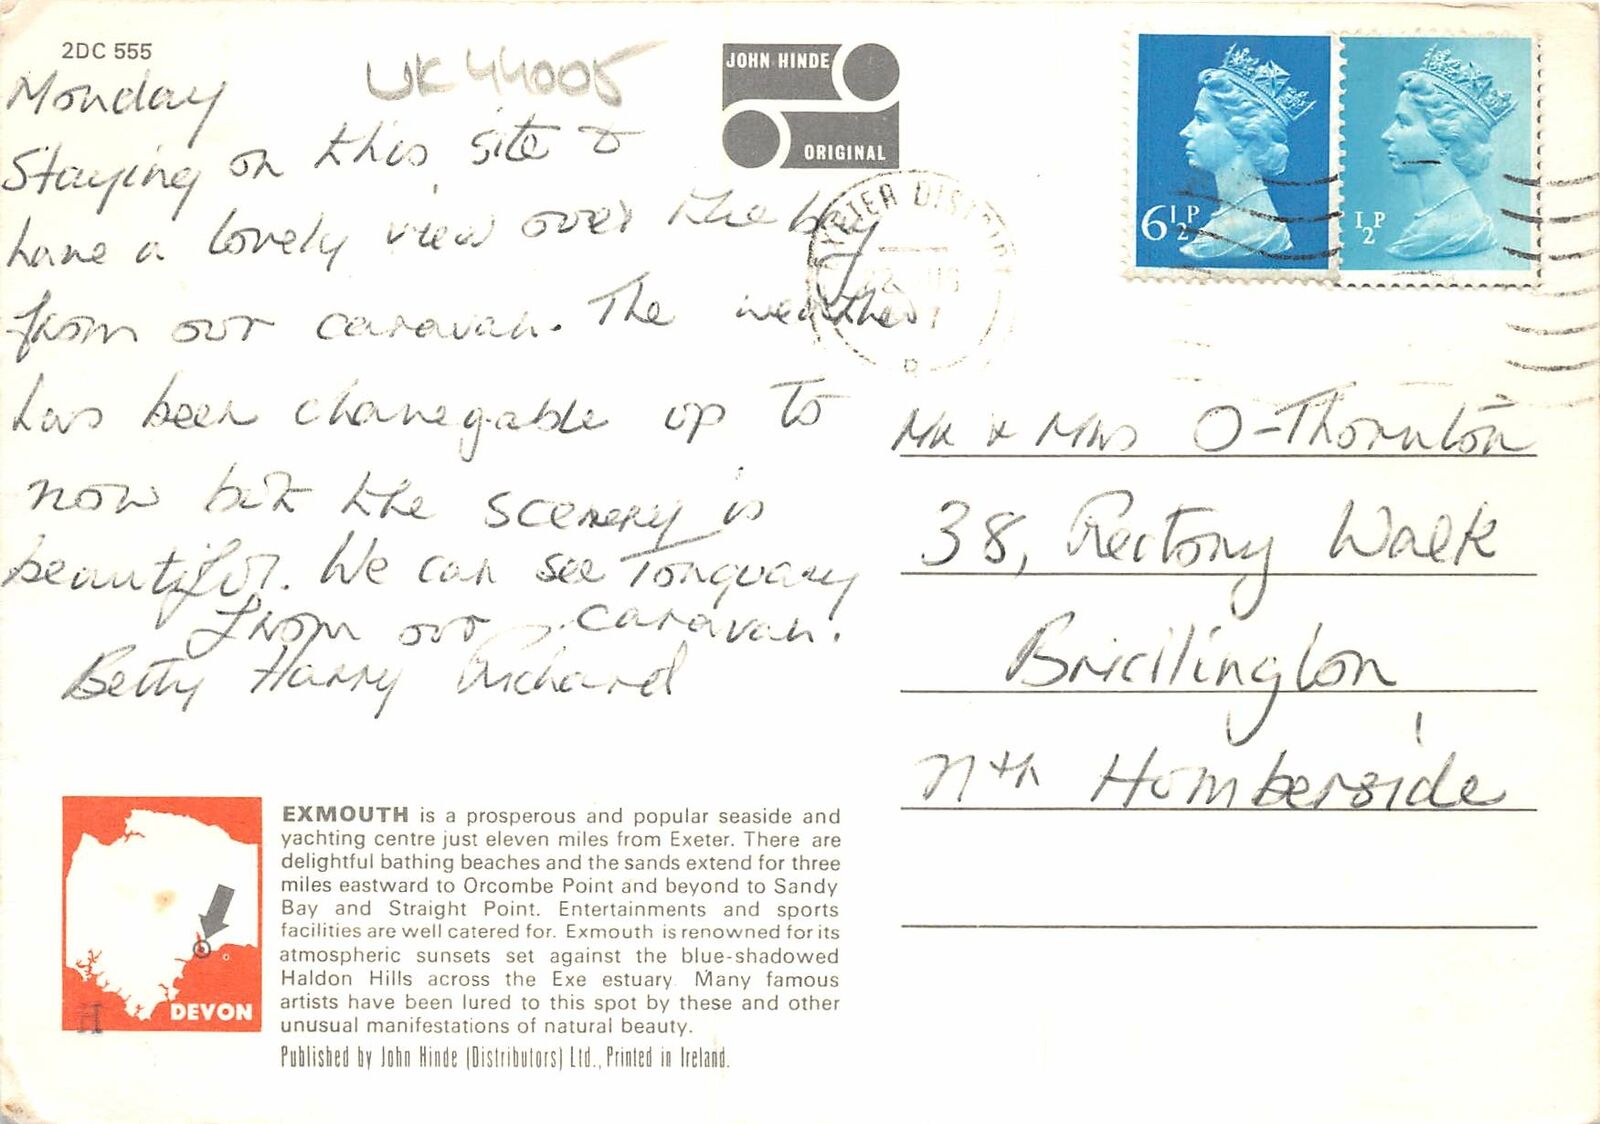 2DC 555
UK44005
JOHN HINDE
ORIGINAL
6½P
½P
EXETER DISTRICT
Monday
Staying on this site &
have a lovely view over the bay
from our caravan. The weather
has been chanegable up to
now but the scenery is
beautiful. We can see Torquay
from our caravan.
Betty Harry Richard
Mr & Mrs O-Thornton
38, Rectory Walk
Bridlington
Nth Homberside
EXMOUTH is a prosperous and popular seaside and
yachting centre just eleven miles from Exeter. There are
delightful bathing beaches and the sands extend for three
miles eastward to Orcombe Point and beyond to Sandy
Bay and Straight Point. Entertainments and sports
facilities are well catered for. Exmouth is renowned for its
atmospheric sunsets set against the blue-shadowed
Haldon Hills across the Exe estuary. Many famous
artists have been lured to this spot by these and other
unusual manifestations of natural beauty.
Published by John Hinde (Distributors) Ltd., Printed in Ireland.
DEVON
H